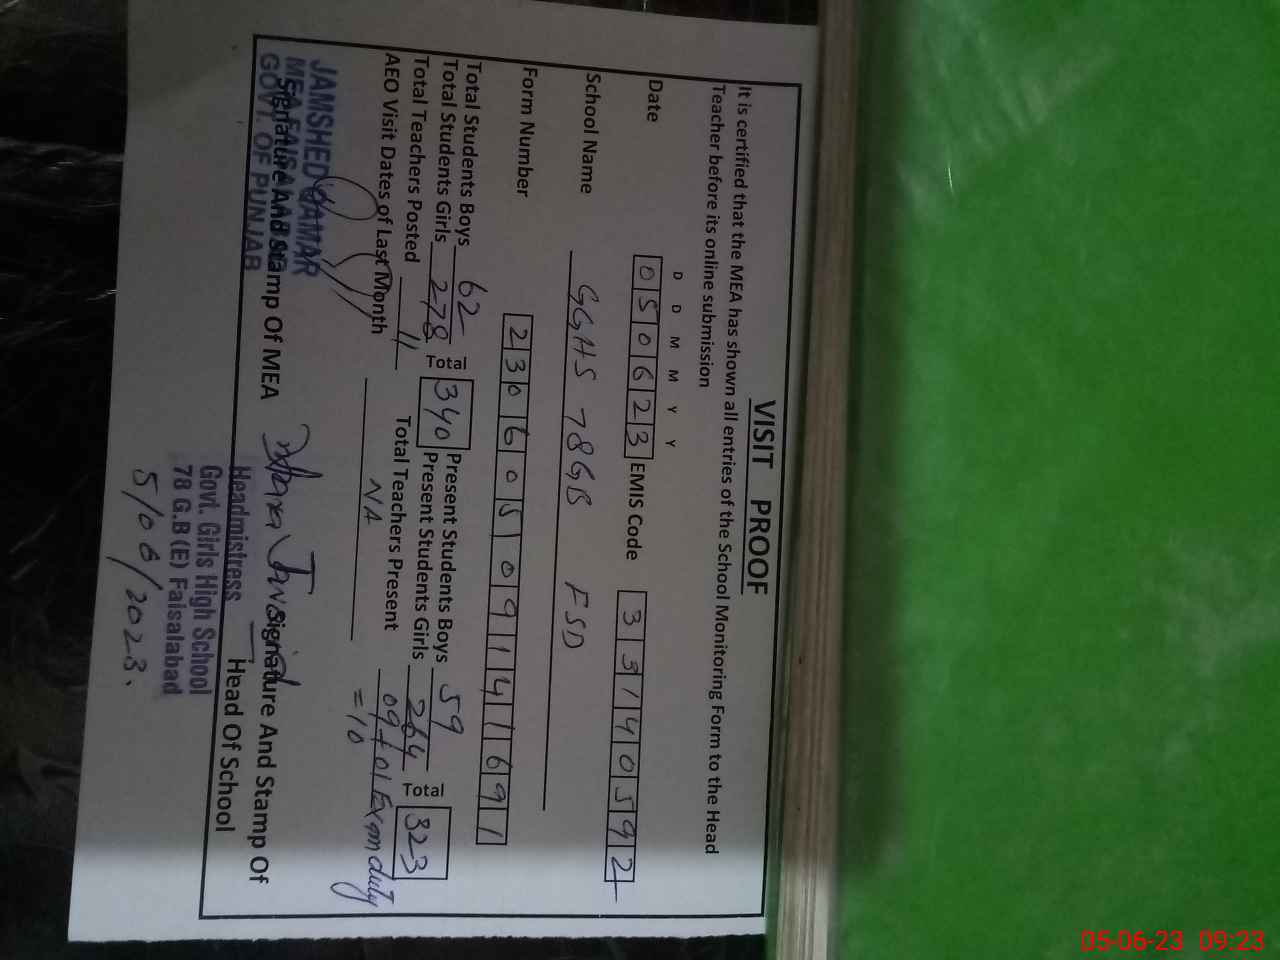 VISIT PROOF
It is certified that the MEA has shown all entries of the School Monitoring Form to the Head
Teacher before its online submission
D D M M Y Y
Date 050623 EMIS Code 33140592
School Name GGHS 78GB FSD
Form Number 23060509141691
Total Students Boys 62 Present Students Boys 59
Total Students Girls 278 Tota 340 Present Students Girls 264 Total 323
Total Teachers Posted 11 Total Teachers Present 09+01 Exam duty
=10
AEO Visit Dates of Last Month NA
JAMSHED QAMAR
MEA FAISALABAD
GOVT. OF PUNJAB
Signature And Stamp Of MEA
Signature And Stamp Of
Head Of School
Headmistress
Govt. Girls High School
78 G.B (E) Faisalabad
5/06/2023.
05-06-23 09:23